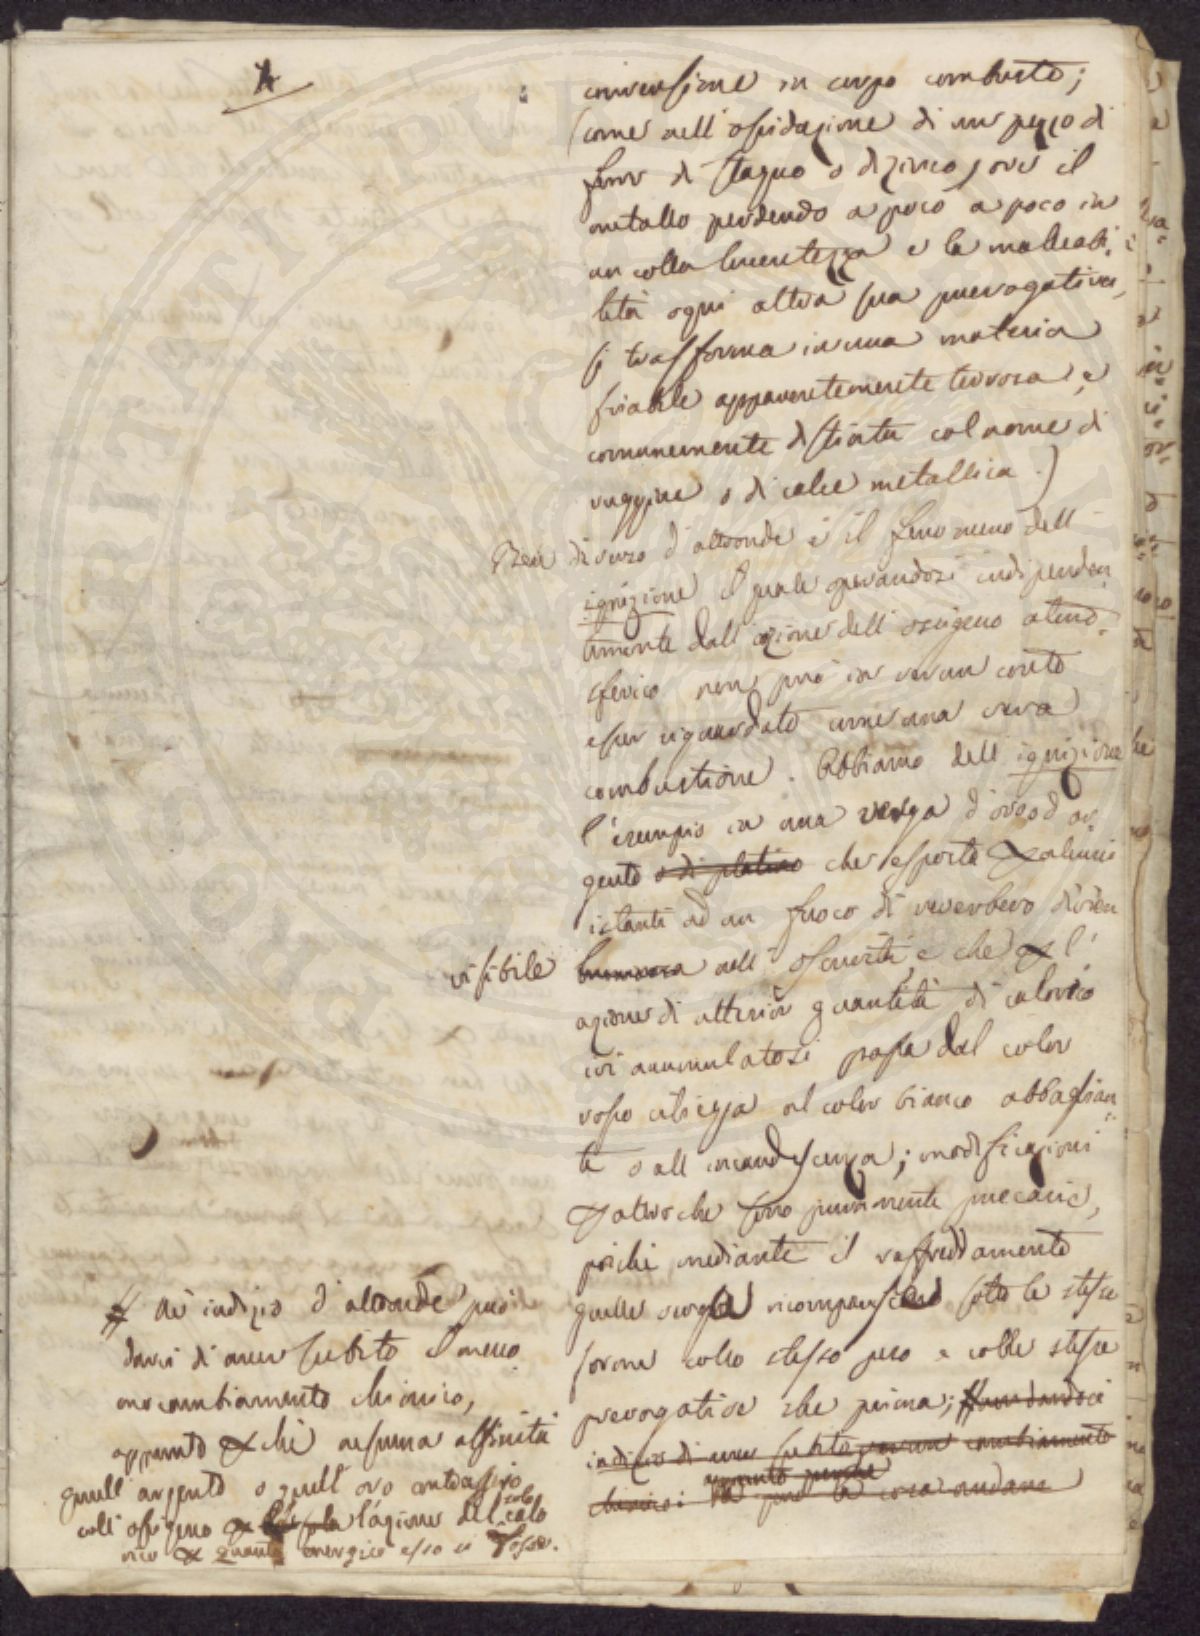 conversione in corpo combusto;
(come nell'ossidazione di un pezzo di
ferro di stagno o di zinco, ove il
metallo perdendo a poco a poco in
un colla lucentezza e la malleabi-
lità ogni altra sua prerogativa,
si trasforma in una materia
friabile apparentemente terrosa, e
comunemente distinta col nome di
ruggine o di calce metallica.)
Ben diverso d'altronde è il fenomeno dell'
ignizione il quale operandosi indipenden
temente dall'azione dell'ossigeno atmo-
sferico non può in verun conto
esser riguardato come una vera
combustione. Abbiamo dell'ignizione
l'esempio in una verga d'oro o d'ar
gento o di platino che esposta p alcuni
istanti ad un fuoco di reverbero divien
visibile luminosa nell'oscurità, e che p l'
azione di ulterior quantità di calorico
ivi accumulatosi passa dal color
rosso ciliegia al color bianco abbaglian-
te o all'incandescenza; modificazioni
p altro che sono puramente precarie,
poiché mediante il raffreddamento
quelle verghe ricompariscono sotto le stesse
forme collo stesso peso e colle stesse
prerogative che prima; # non dandoci
indizio di aver subito verun cambiamento
appunto perché
chimico
# Né indizio d'altronde può
darci di aver subito il meno
mo cambiamento chimico,
appunto p ché nessuna affinità
quell'argento o quell'oro contrassero
coll'ossigeno p l'azione del solo calo
rico p quanto energico esso si fosse.